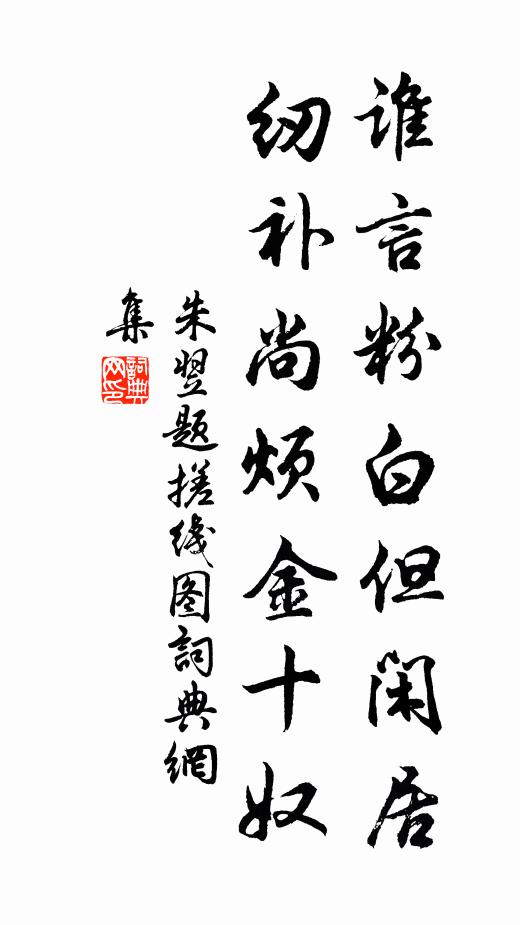 谁言粉白但闲居
纫补尚烦金十奴
朱翌题搓线图詞典網
集
詞典
网印